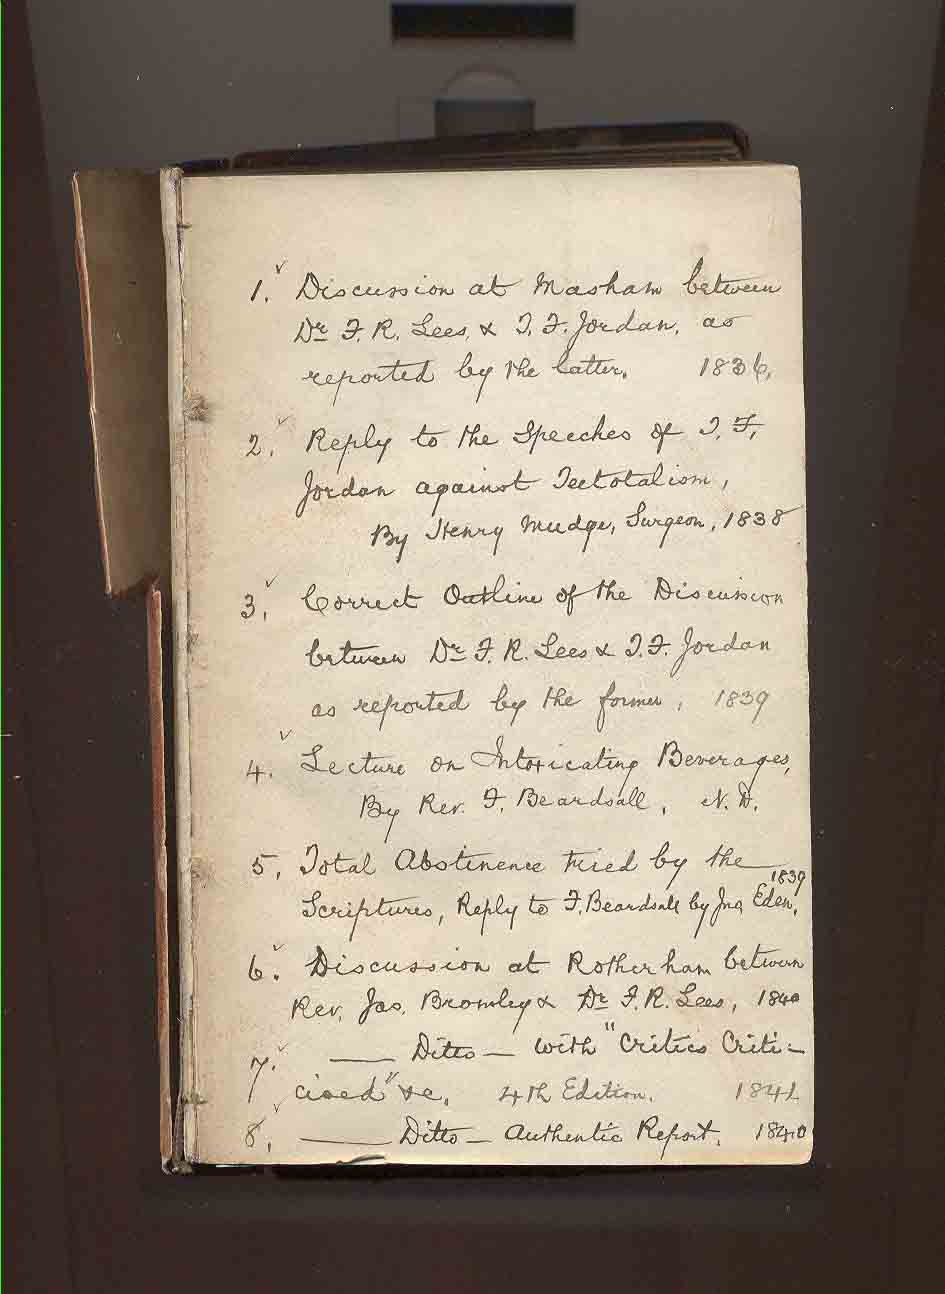 1. Discussion at Masham between
Dr F. R. Lees, & T. F. Jordan, as
reported by the latter. 1836.
2. Reply to the Speeches of T. F.
Jordan against Teetotalism,
By Henry Mudge, Surgeon, 1838
3. Correct Outline of the Discussion
between Dr F. R. Lees & T. F. Jordan
as reported by the former, 1839
4. Lecture on Intoxicating Beverages,
By Rev. F. Beardsall, N. D.
5. Total Abstinence tried by the
Scriptures, Reply to F. Beardsall by Jno Eden, 1839
6. Discussion at Rotherham between
Rev. Jas. Bromley & Dr F. R. Lees, 1840
7. — Ditto — with "Critics Criti-
cised" &c. 4th Edition. 1841
8. — Ditto — Authentic Report. 1840